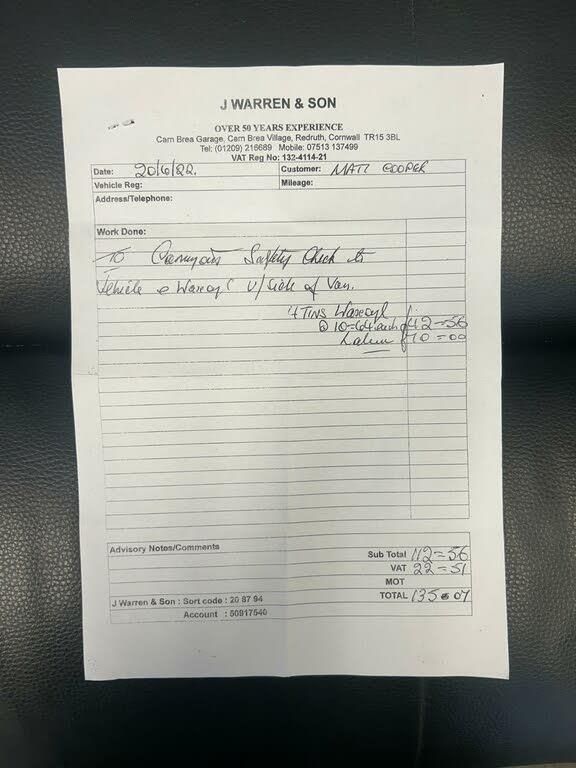 J WARREN & SON
OVER 50 YEARS EXPERIENCE
Carn Brea Garage, Carn Brea Village, Redruth, Cornwall TR15 3BL
Tel: (01209) 216689 Mobile: 07513 137499
VAT Reg No: 132-4114-21
Date: 20/6/22. Customer: MATT COOPER
Vehicle Reg: Mileage:
Address/Telephone:
Work Done:
To Carryout Safety Check to
Vehicle & Waxoyl U/side of Van.
4 Tins Waxoyl
@ 10=64 each £42=56
Labour £70=00
Advisory Notes/Comments
Sub Total 112=56
VAT 22=51
MOT
TOTAL 135=07
J Warren & Son : Sort code : 20 87 94
Account : 50917540